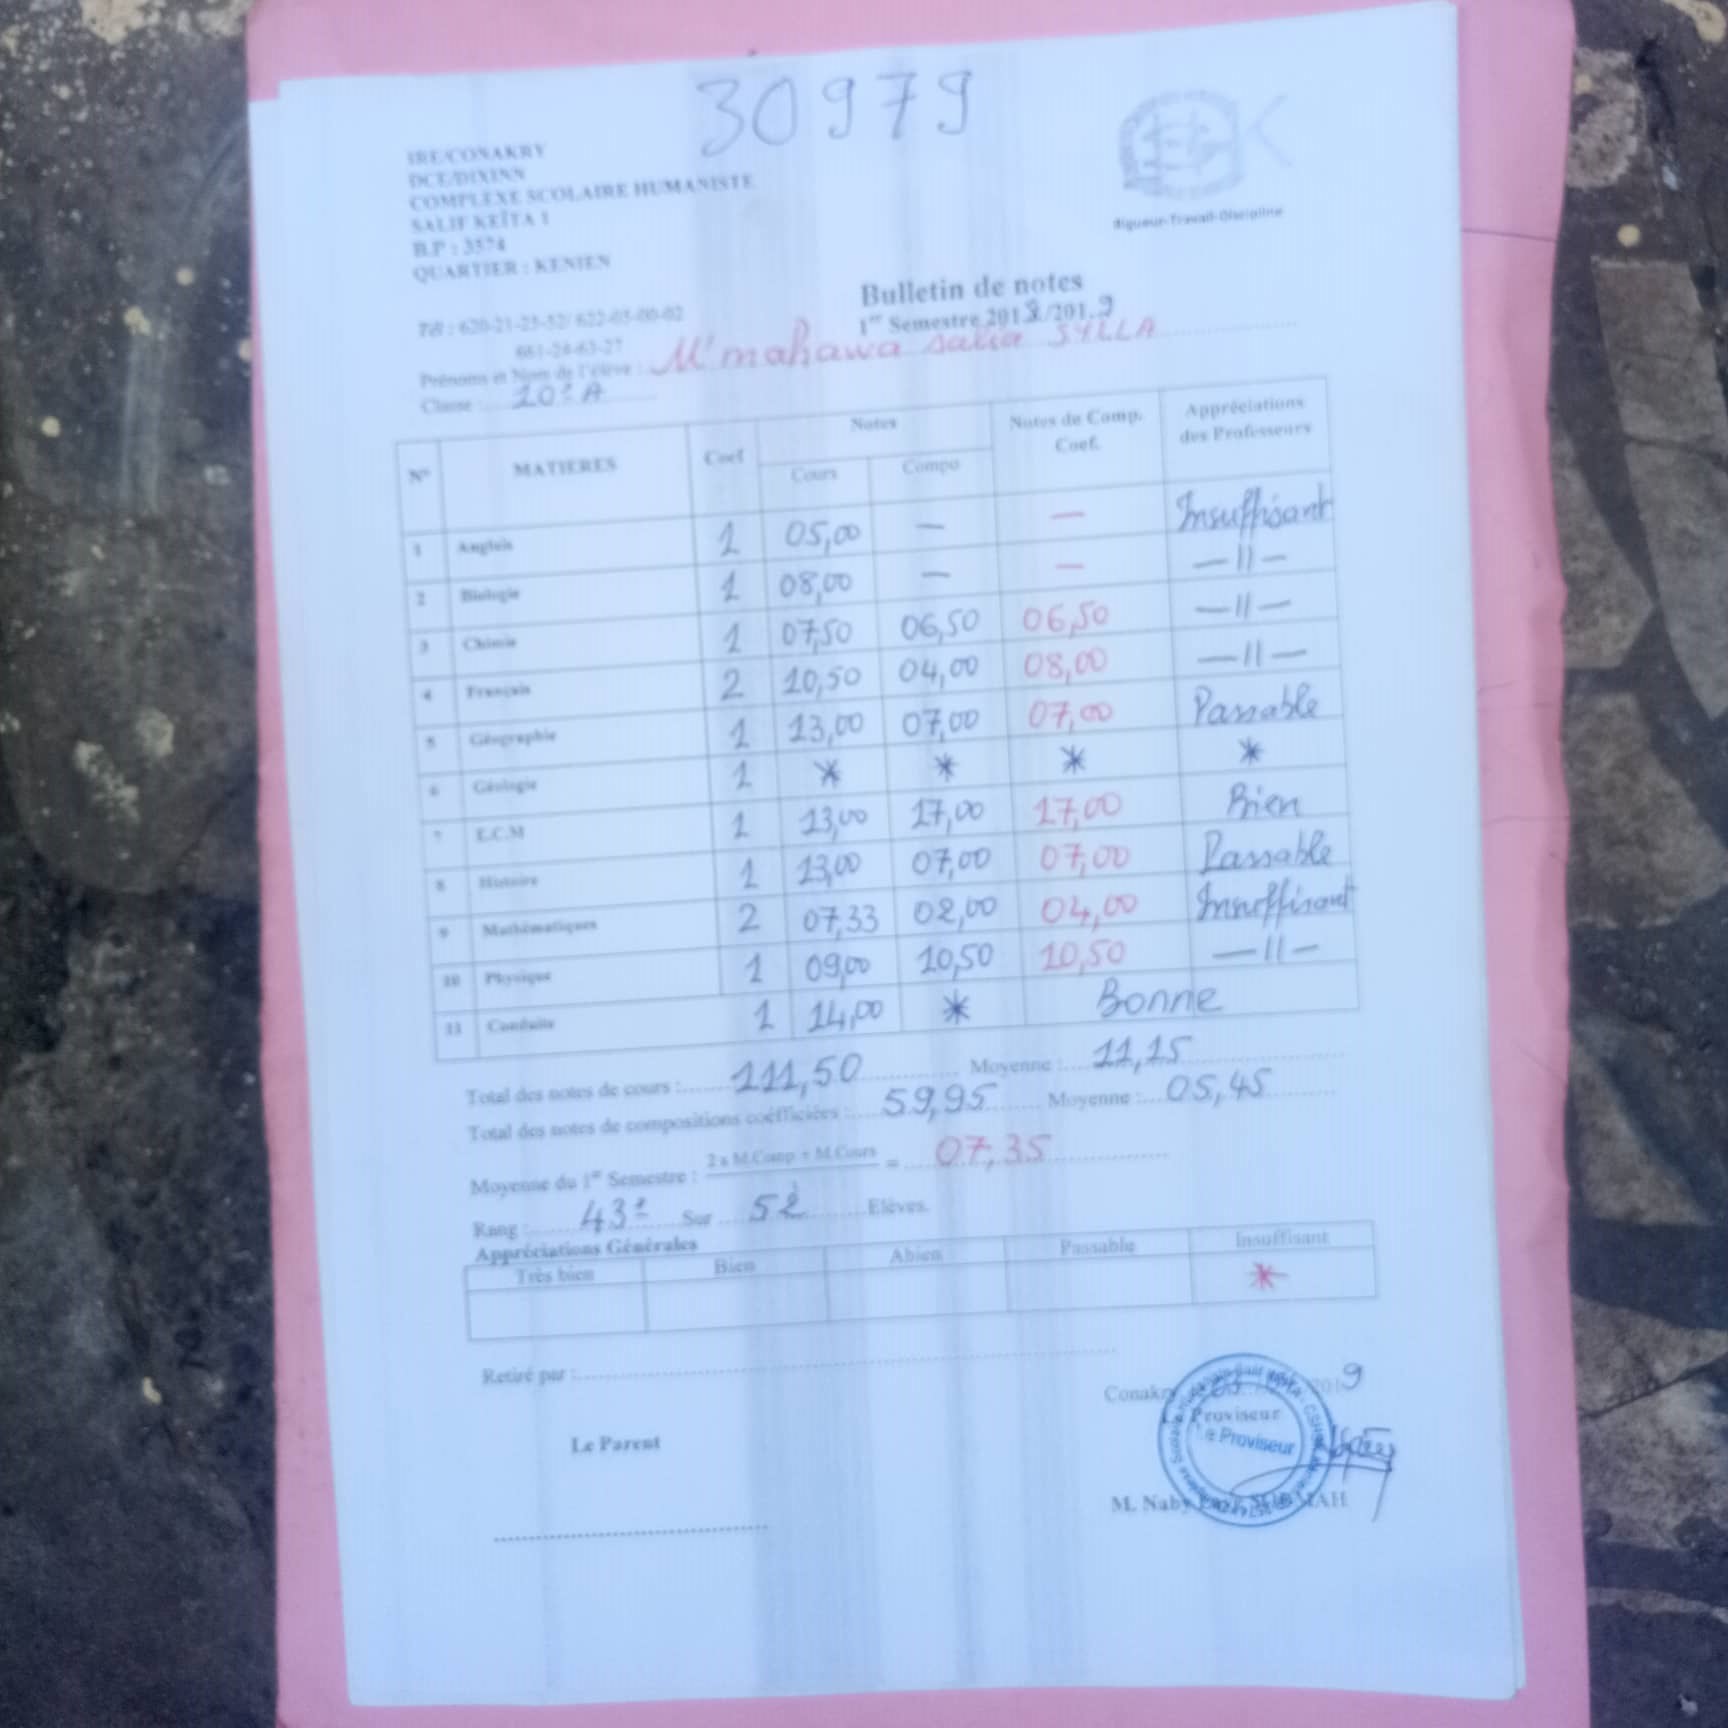 30979
IRE/CONAKRY
DCE/DIXINN
COMPLEXE SCOLAIRE HUMANISTE
SALIF KEÏTA 1
B.P : 3574
QUARTIER : KENIEN
Rigueur-Travail-Discipline
Tél : 620-21-25-52/ 622-05-00-02
661-24-63-27
Bulletin de notes
1er Semestre 2018/2019
Prénoms et Nom de l'élève : M'mahawa salia SYLLA
Classe : 10e A
N° MATIERES Coef Notes Notes de Comp. Coef. Appréciations des Professeurs
Cours Compo
1 Anglais 1 05,00 — — Insuffisant
2 Biologie 1 08,00 — — —||—
3 Chimie 1 07,50 06,50 06,50 —||—
4 Français 2 10,50 04,00 08,00 —||—
5 Géographie 1 13,00 07,00 07,00 Passable
6 Géologie 1 * * * *
7 E.C.M 1 13,00 17,00 17,00 Bien
8 Histoire 1 13,00 07,00 07,00 Passable
9 Mathématiques 2 07,33 02,00 04,00 Insuffisant
10 Physique 1 09,00 10,50 10,50 —||—
11 Conduite 1 14,00 * Bonne
Total des notes de cours : 111,50 Moyenne : 11,15
Total des notes de compositions coéfficiées : 59,95 Moyenne : 05,45
Moyenne du 1er Semestre : 2 x M.Comp + M.Cours = 07,35
Rang : 43e Sur 52 Elèves.
Appréciations Générales
Très bien Bien Abien Passable Insuffisant
*
Retiré par :
Conakry 9
Le Parent
Proviseur
Le Proviseur
M. Naby